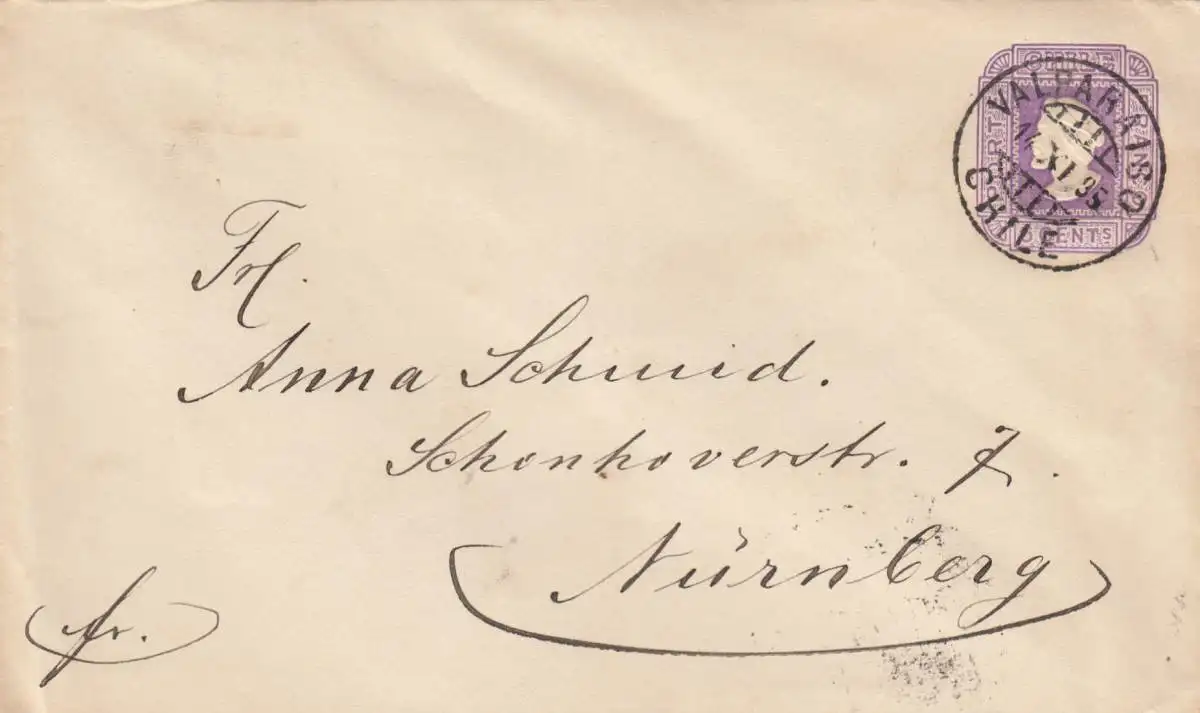 VALPARAISO
11 XI 95
CHILE
PORTE
5 CENTS
Frl.
Anna Schmid.
Schonhoverstr. 7.
Nürnberg
fr.